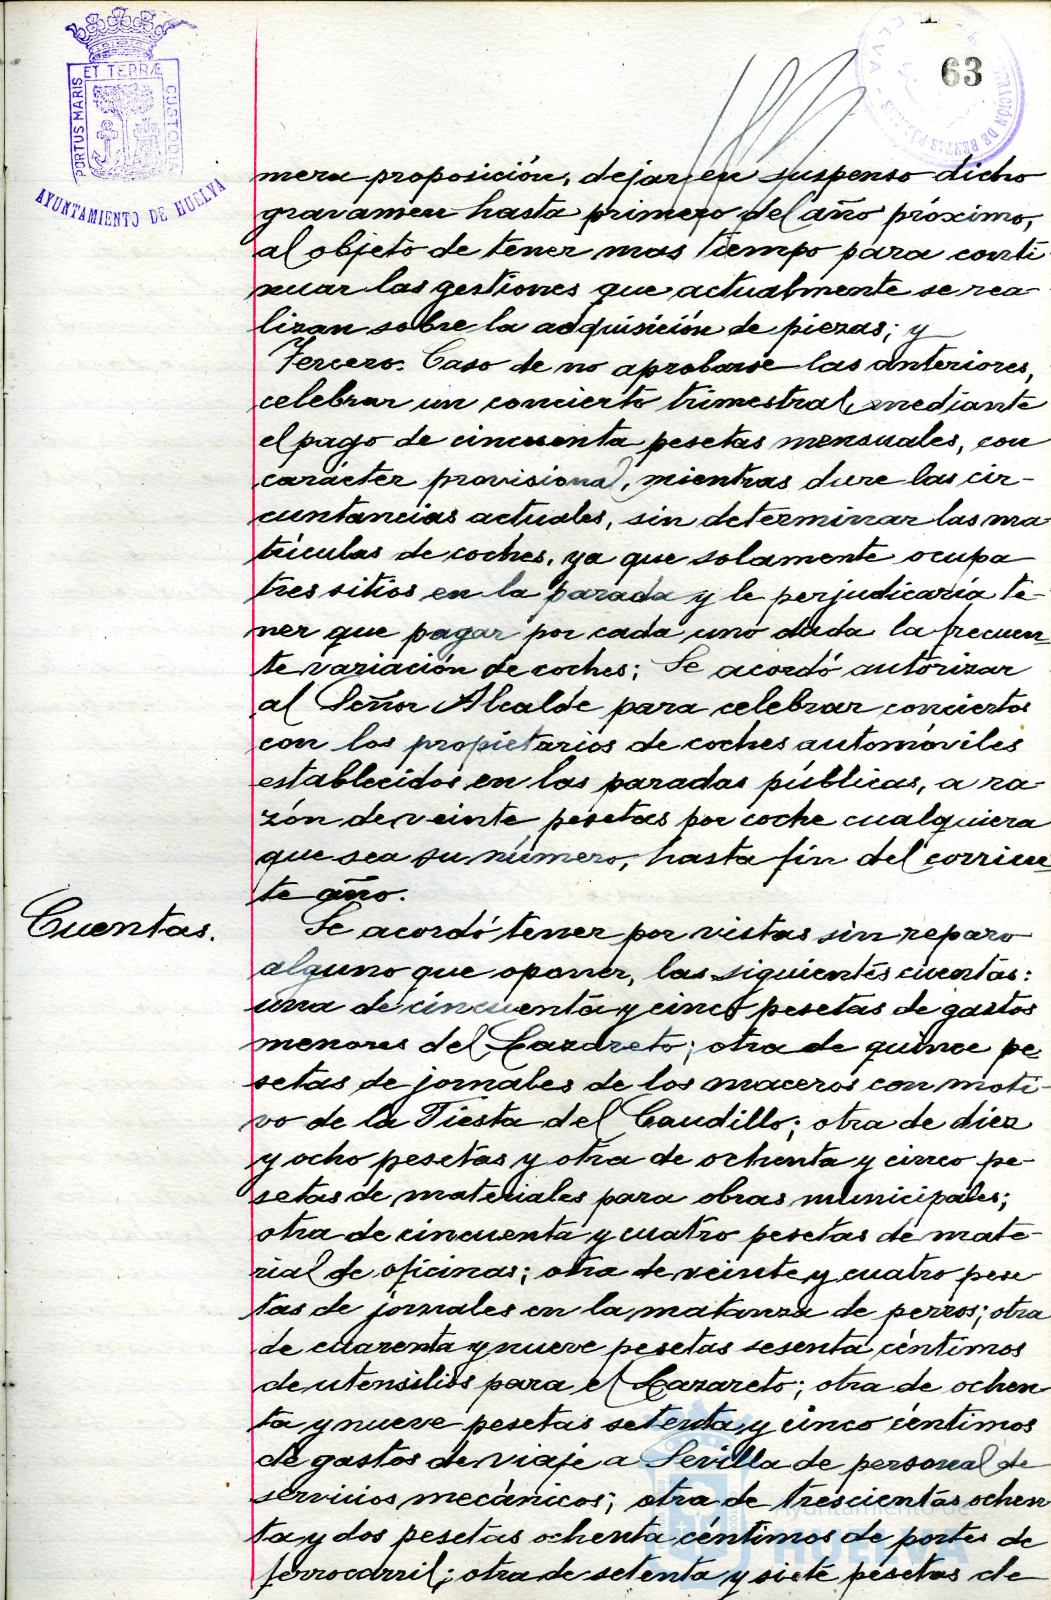 63
ET TERRÆ
PORTUS MARIS
CUSTODIA
AYUNTAMIENTO DE HUELVA
mera proposición, dejar en suspenso dicho
gravamen hasta primero del año próximo,
al objeto de tener mas tiempo para conti-
nuar las gestiones que actualmente se rea-
lizan sobre la adquisición de piezas; y
Tercero. Caso de no aprobarse las anteriores,
celebrar un concierto trimestral, mediante
el pago de cincuenta pesetas mensuales, con
carácter provisional, mientras dure las cir-
cuntancias actuales, sin determinar las ma
trículas de coches, ya que solamente ocupa
tres sitios en la parada y le perjudicaría te-
ner que pagar por cada uno dada la frecuen-
te variación de coches; Se acordó autorizar
al Señor Alcalde para celebrar conciertos
con los propietarios de coches automóviles
establecidos en las paradas públicas, a ra-
zón de veinte pesetas por coche cualquiera
que sea su número, hasta fin del corrien-
te año.
Cuentas.
Se acordó tener por vistas sin reparo
alguno que oponer, las siguientes cuentas:
una de cincuenta y cinco pesetas de gastos
menores del Lazareto; otra de quince pe-
setas de jornales de los maceros con moti-
vo de la Fiesta del Caudillo; otra de diez
y ocho pesetas y otra de ochenta y cinco pe-
setas de materiales para obras municipales;
otra de cincuenta y cuatro pesetas de mate-
rial de oficinas; otra de veinte y cuatro pese-
tas de jornales en la matanza de perros; otra
de cuarenta y nueve pesetas sesenta céntimos
de utensilios para el Lazareto; otra de ochen
ta y nueve pesetas setenta y cinco céntimos
de gastos de viaje a Sevilla de personal de
servicios mecánicos; otra de trescientas ochen
ta y dos pesetas ochenta céntimos de portes de
ferrocarril; otra de setenta y siete pesetas de
Ayuntamiento de
HUELVA